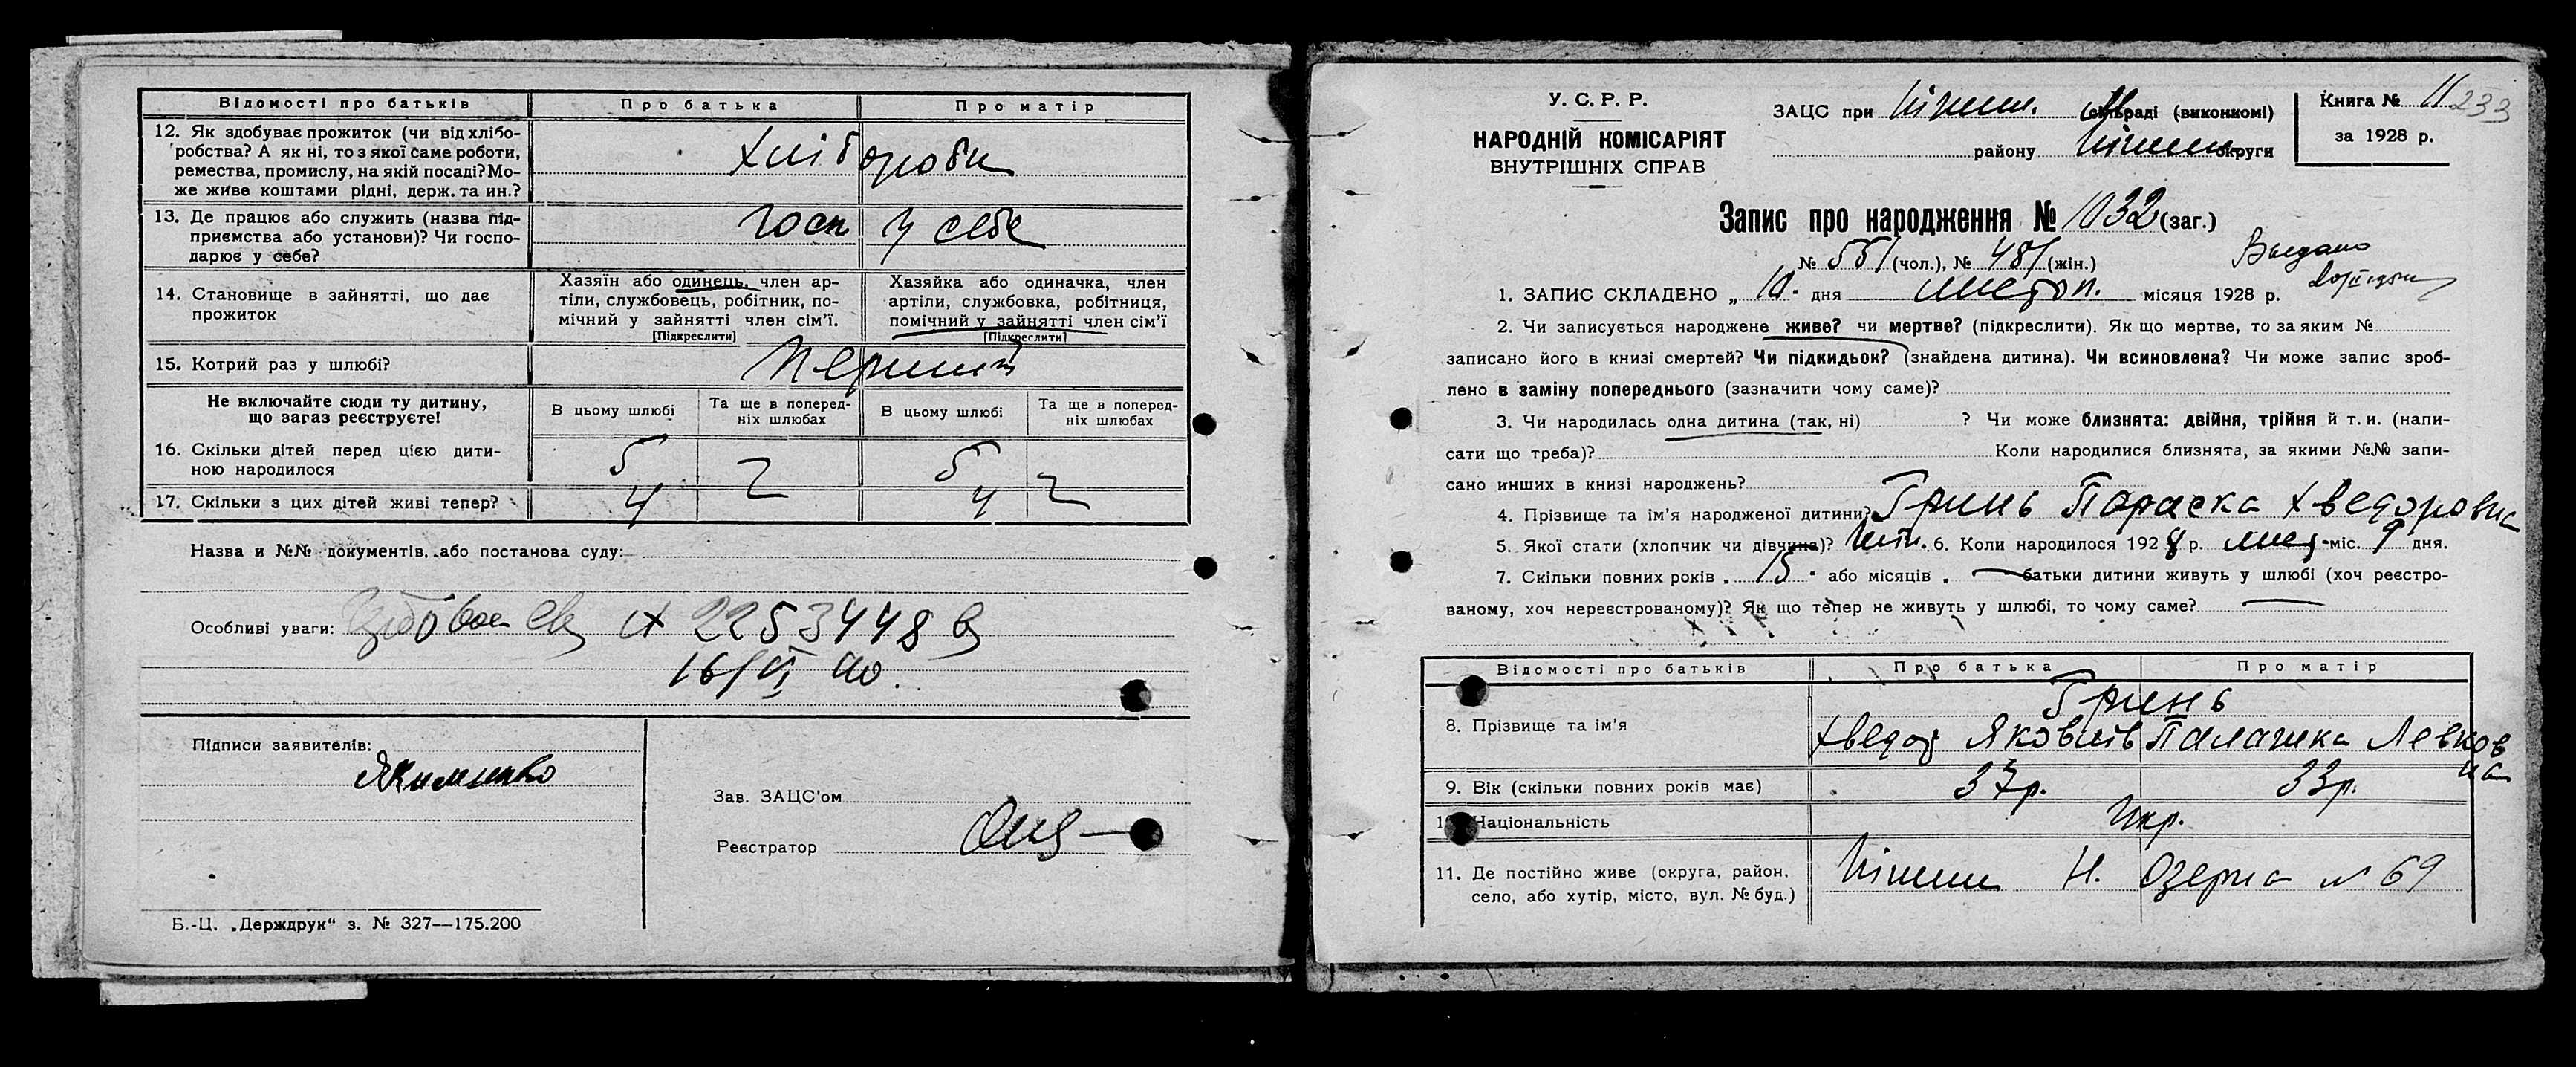 Відомості про батьків Про батька Про матір
12. Як здобуває прожиток (чи від хлібо-
робства? А як ні, то з якої саме роботи,
ремества, промислу, на якій посаді? Мо-
же живе коштами рідні, держ. та ин.?
Хлібороби
13. Де працює або служить (назва під-
приємства або установи)? Чи госпо-
дарює у себе?
госп у себе
14. Становище в зайнятті, що дає
прожиток
Хазяїн або одинець, член ар-
тіли, службовець, робітник, по-
мічний у зайнятті член сім'ї.
[Підкреслити]
Хазяйка або одиначка, член
артіли, службовка, робітниця,
помічний у зайнятті член сім'ї
[Підкреслити]
15. Котрий раз у шлюбі?
Перший
Не включайте сюди ту дитину,
що загаз реєструєте!
В цьому шлюбі Та ще в поперед-
ніх шлюбах В цьому шлюбі Та ще в поперед-
ніх шлюбах
16. Скільки дітей перед цією дити-
ною народилося
5 5
17. Скільки з цих дітей живі тепер?
4 4
Назва и №№ документів, або постанова суду:
Особливі уваги: 2253448
16/VI 40.
Підписи заявителів:
Якименко
Зав. ЗАЦС'ом
Реєстратор
Б.-Ц. „Держдрук“ з. № 327—175.200
У. С. Р. Р.
НАРОДНІЙ КОМІСАРІЯТ
ВНУТРІШНІХ СПРАВ
ЗАЦС при Ніжин. сільраді (виконкомі)
району Ніжин округи
Книга № 11 233
за 1928 р.
Запис про народження № 1032 (заг.)
№ 551 (чол.), № 481 (жін.)
Выдано
1. ЗАПИС СКЛАДЕНО „ 10. дня листоп. місяця 1928 р.
2. Чи записується народжене живе? чи мертве? (підкреслити). Як що мертве, то за яким №
записано його в книзі смертей? Чи підкидьок? (знайдена дитина). Чи всиновлена? Чи може запис зроб-
лено в заміну попереднього (зазначити чому саме)?
3. Чи народилась одна дитина (так, ні) ? Чи може близнята: двійня, трійня й т. и. (напи-
сати що треба)? Коли народилися близнята, за якими №№ запи-
сано инших в книзі народжень?
4. Прізвище та ім'я народженої дитини? Гринь Параска Хведоровна
5. Якої стати (хлопчик чи дівчина)? жін. 6. Коли народилося 1928 р. лист. міс. 9 дня.
7. Скільки повних років „ 15 “ або місяців „ — батьки дитини живуть у шлюбі (хоч реєстро-
ваному, хоч нереєстрованому)? Як що тепер не живуть у шлюбі, то чому саме? —
Відомості про батьків Про батька Про матір
8. Прізвище та ім'я
Гринь
Хведор Яковлів Палажка Левков
на
9. Вік (скільки повних років має) 37р. 33р.
10. Національність Укр.
11. Де постійно живе (округа, район,
село, або хутір, місто, вул. № буд.)
Ніжин Н. Озерна № 69